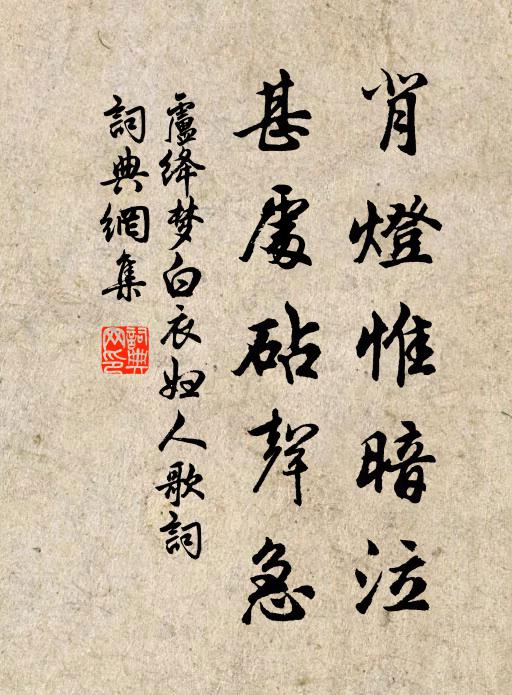 肖燈惟暗泣
甚處砧聲急
盧绛梦白衣妇人歌詞
詞典網集
詞典
网印